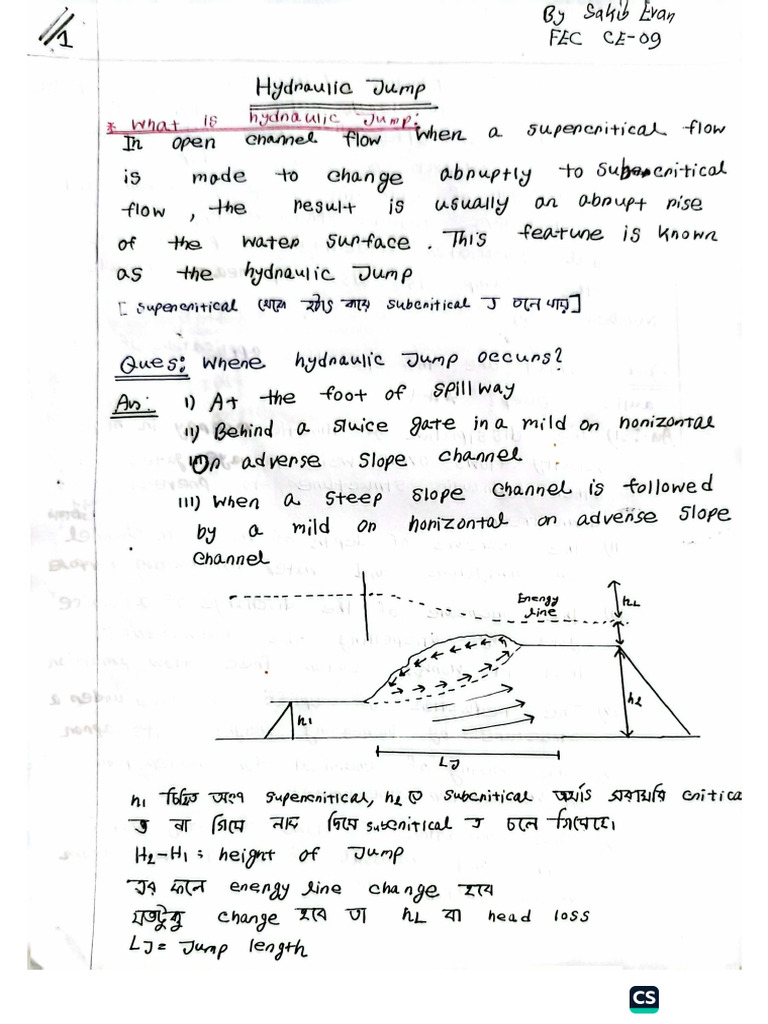 1
By Sakib Evan
FEC CE-09
Hydraulic Jump
* What is hydraulic Jump:
In open channel flow when a supercritical flow
is made to change abruptly to subcritical
flow, the result is usually an abrupt rise
of the water surface. This feature is known
as the hydraulic Jump
[supercritical থেকে হঠাৎ করে subcritical এ চলে যায়]
Ques: Where hydraulic Jump occurs?
An: i) At the foot of spillway
ii) Behind a sluice gate in a mild or horizontal
or adverse slope channel
iii) When a steep slope channel is followed
by a mild or horizontal or adverse slope
channel
Energy
line
hL
h1
h2
LJ
h1 চিহ্নিত অংশ supercritical, h2 তে subcritical অর্থাৎ সরাসরি critica
এ না গিয়ে লাফ দিয়ে subcritical এ চলে গিয়েছে।
H2-H1 = height of Jump
এর ফলে energy line change হবে
যতটুকু change হবে তা hL বা head loss
LJ = Jump length
CS